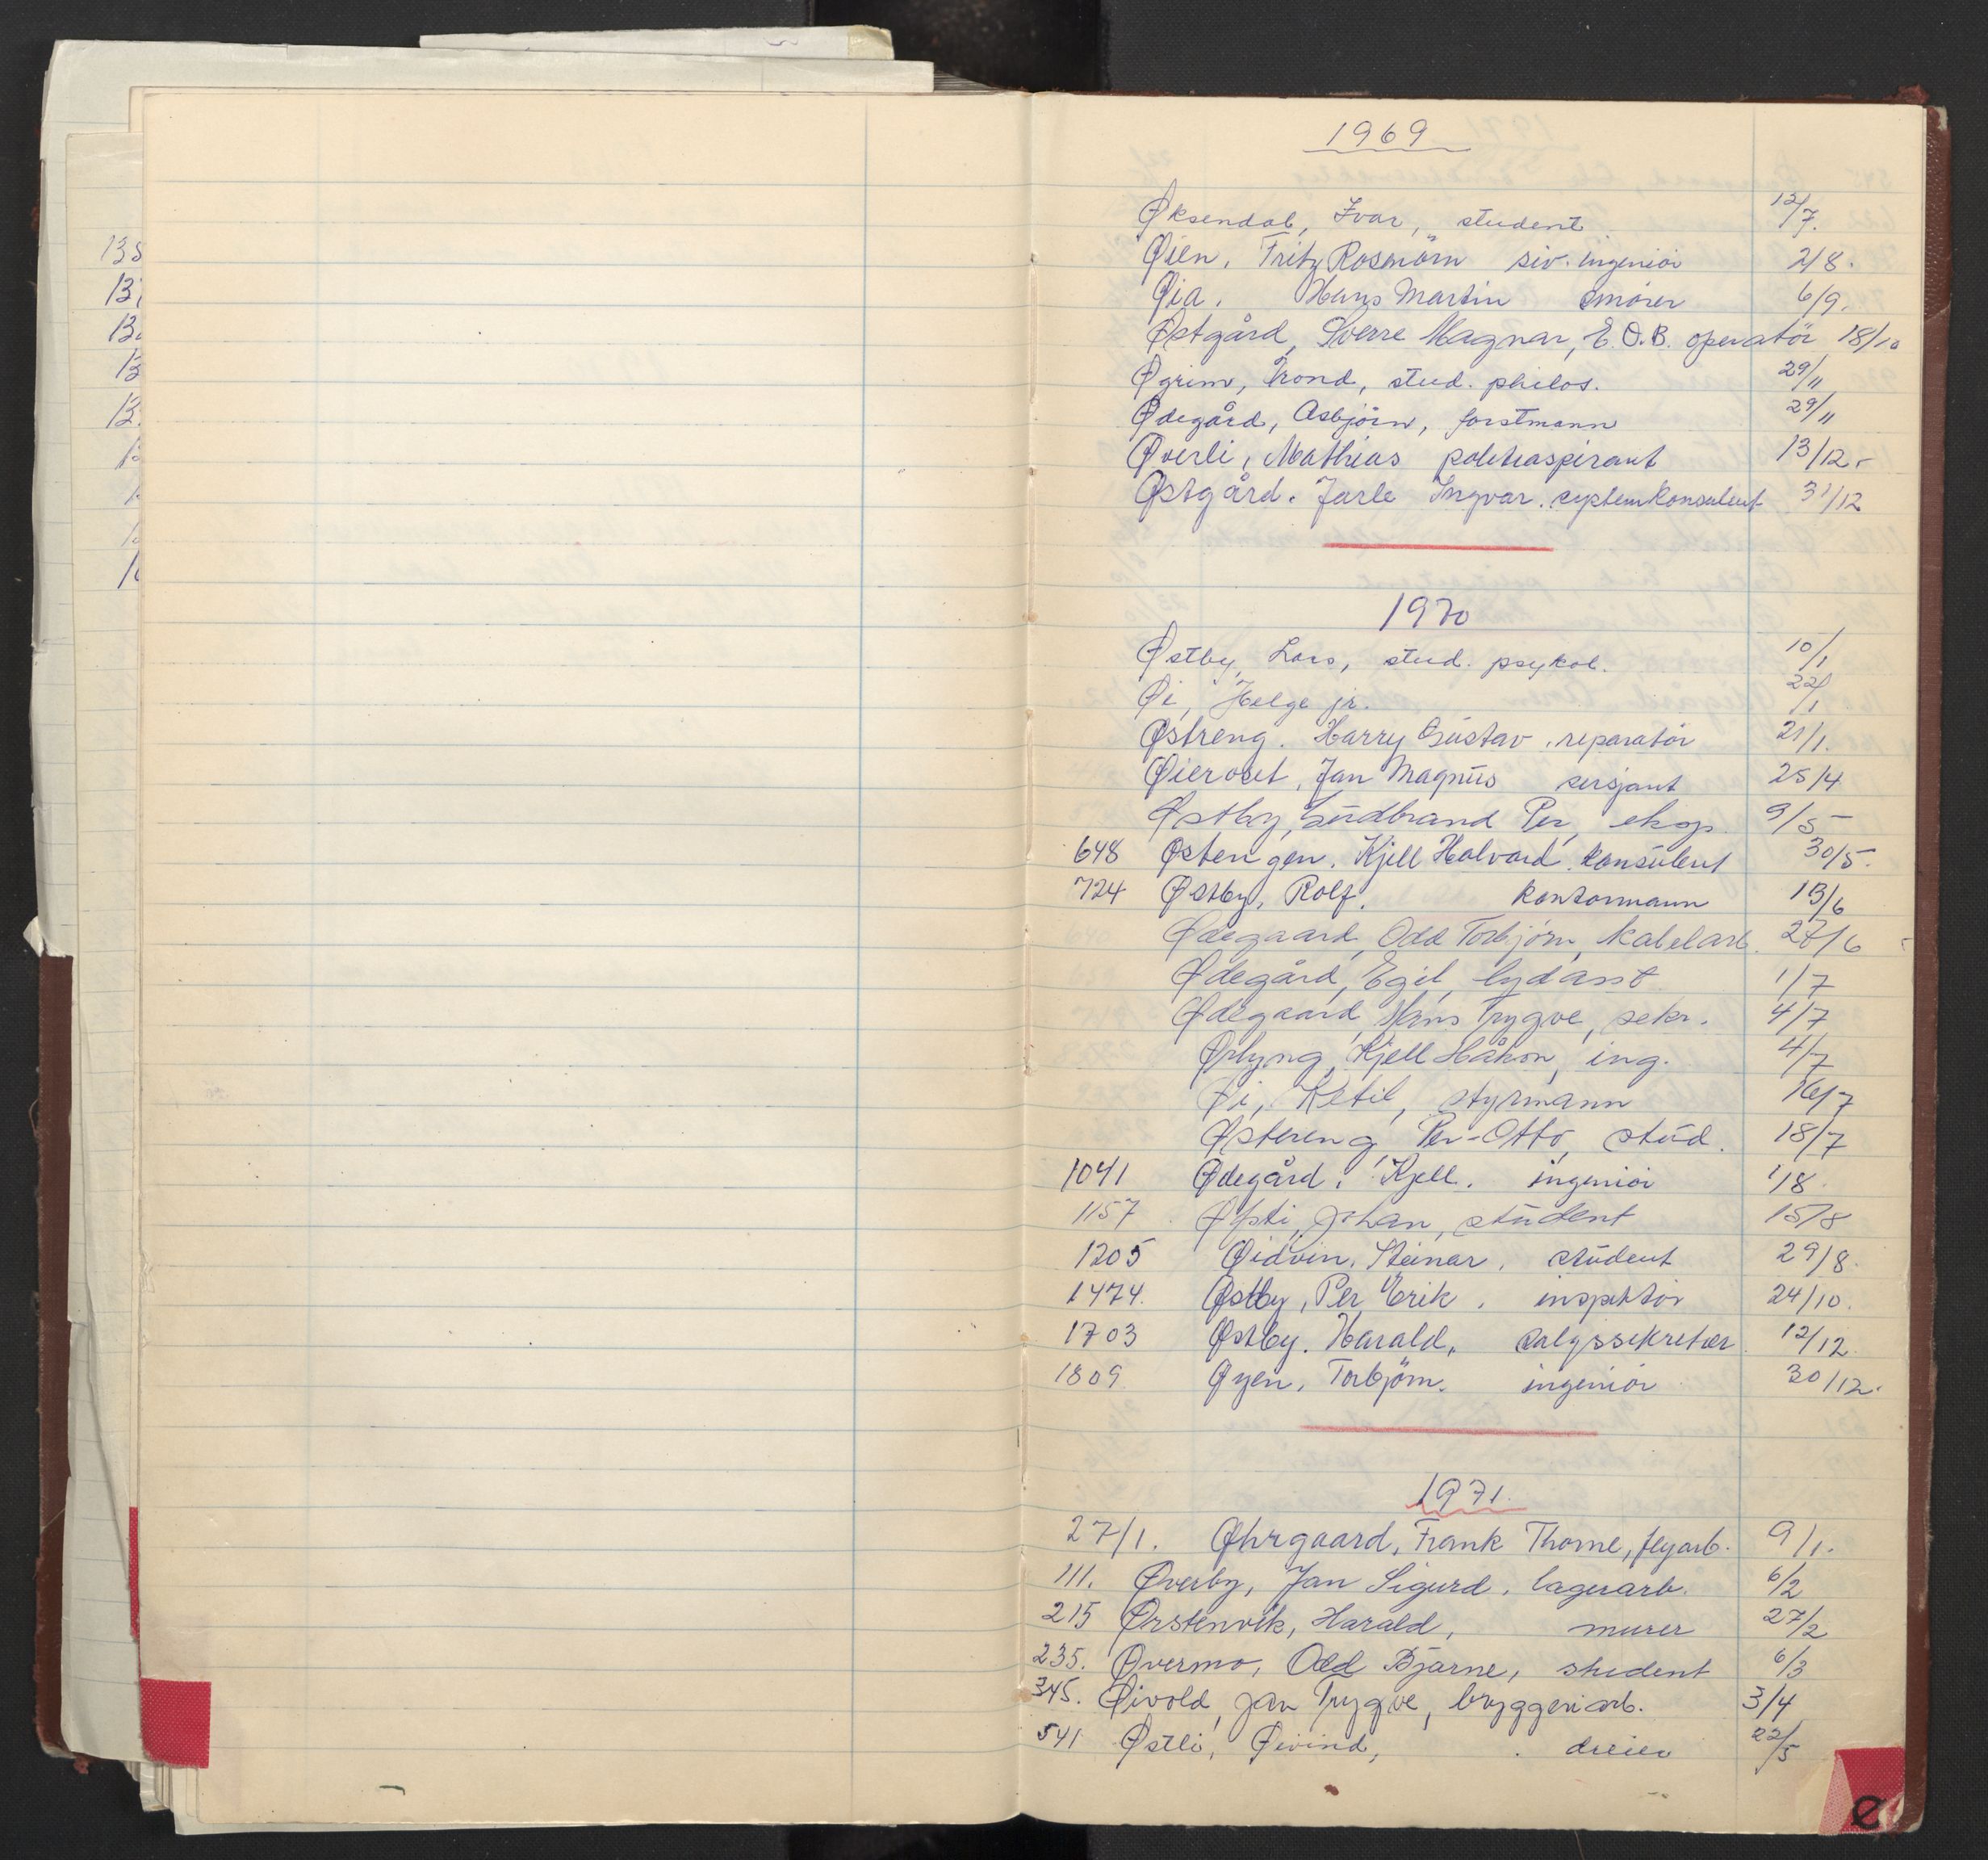 1969
Øksendal, Ivar, student 12/7.
Øien, Fritz Rosenörn siv. ingeniör 2/8.
Øia, Hans Martin smörer 6/9.
Østgård, Sverre Magnar, E.D.B. operatör 18/10
Øgrim, Trond, stud. philos. 29/11
Ødegård, Asbjörn, forstmann 29/11
Øverli, Mathias politiaspirant 13/12.
Østgård. Jarle Ingvar. systemkonsulent 31/12
1970
Østby, Lars, stud. psykol. 10/1
Øi, Helge jr. 22/1
Østreng. Harry Gustav, reparatör 21/1.
Øieroset, Jan Magnus sersjant 25/4
Østby, Gudbrand Per, eksp. 9/5
648 Østengen, Kjell Halvard. konsulent 30/5.
724 Østby, Rolf. kontormann 13/6
Ødegaard, Odd Torbjörn, kabelarb. 27/6
Ødegård, Egil, lydasst. 1/7
Ødegaard, Hans Trygve, sekr. 4/7
Ørlyng, Kjell Håkon, ing. 4/7
Øi, Ketil, styrmann 16/7
Østereng, Per-Otto, stud. 18/7
1041 Ødegård, Kjell. ingeniör 1/8
1157 Øfsti, Johan, student 15/8
1205 Øidvin, Steinar, student 29/8.
1474. Østby, Per Erik, inspektör 24/10.
1703 Østby. Harald, salgssekretær 12/12
1809 Øyen, Torbjörn. ingeniör 30/12.
1971.
27/1. Øhrgaard, Frank Thorne, flyarb. 9/1.
111. Øverby, Jan Sigurd, lagerarb. 6/2
215 Ørstenvik, Harald, murer 27/2
235. Øvermo, Odd Bjarne, student 6/3
345. Øivold, Jan Trygve, bryggeriarb. 3/4
541 Østli, Øivind, dreier 22/5
e